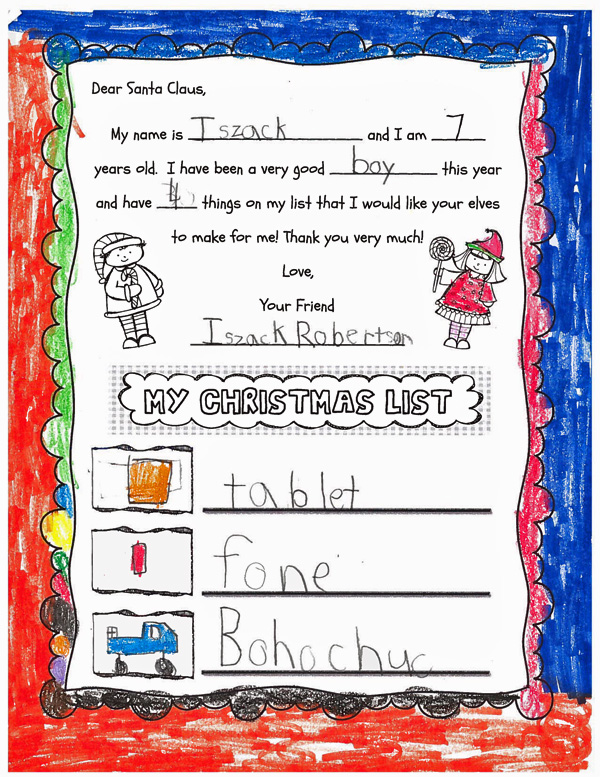 Dear Santa Claus,
My name is Iszack and I am 7
years old. I have been a very good boy this year
and have things on my list that I would like your elves
to make for me! Thank you very much!
Love,
Your Friend
Iszack Robertson
MY CHRISTMAS LIST
tablet
fone
Bohochuc